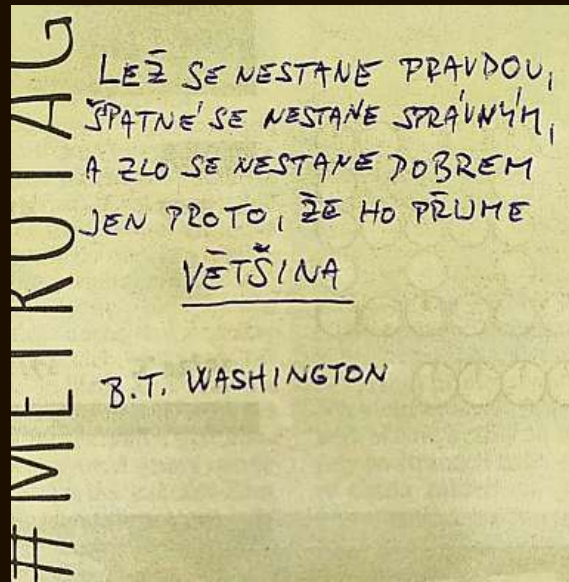 #METROTAG
LEŽ SE NESTANE PRAVDOU,
ŠPATNÉ SE NESTANE SPRÁVNÝM,
A ZLO SE NESTANE DOBREM
JEN PROTO, ŽE HO PŘIJME
VĚTŠINA
B.T. WASHINGTON